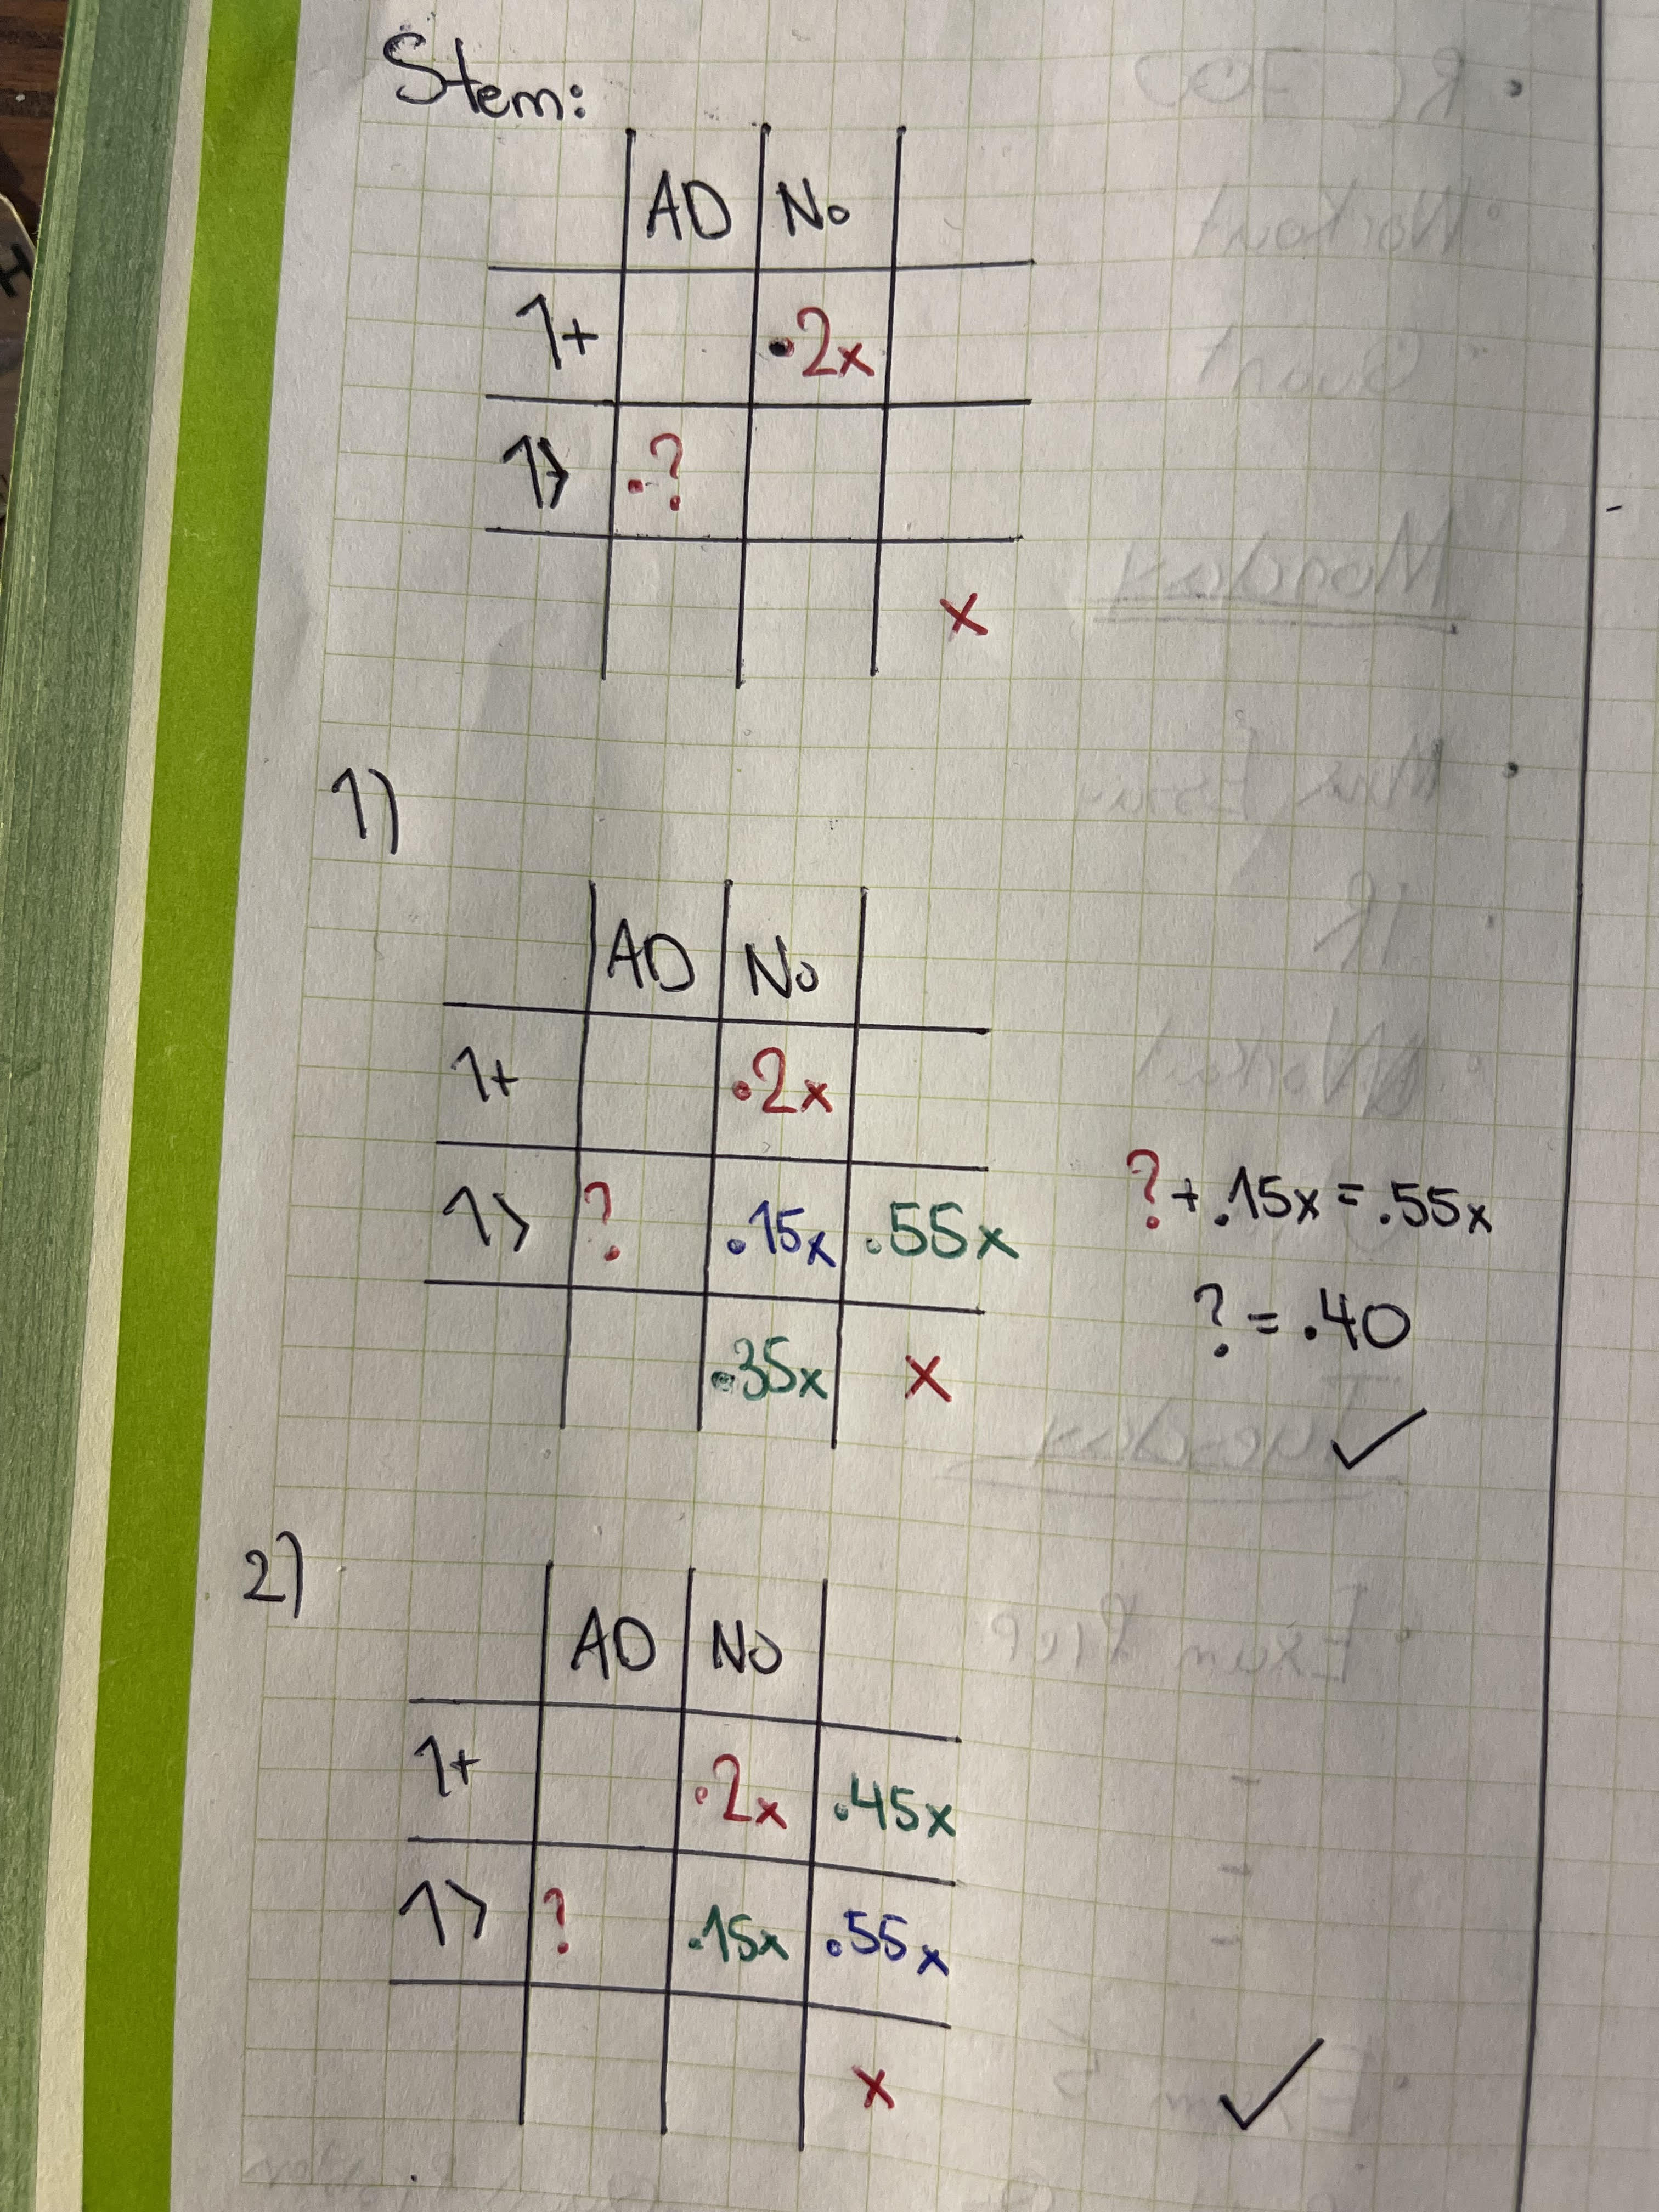 Stem:
AD No
1+ .2x
1> .?
x
1)
AD No
1+ .2x
1> ? .15x .55x
.35x x
? + .15x = .55x
? = .40
✓
2)
AD No
1+ .2x .45x
1> ? .15x .55x
x
✓